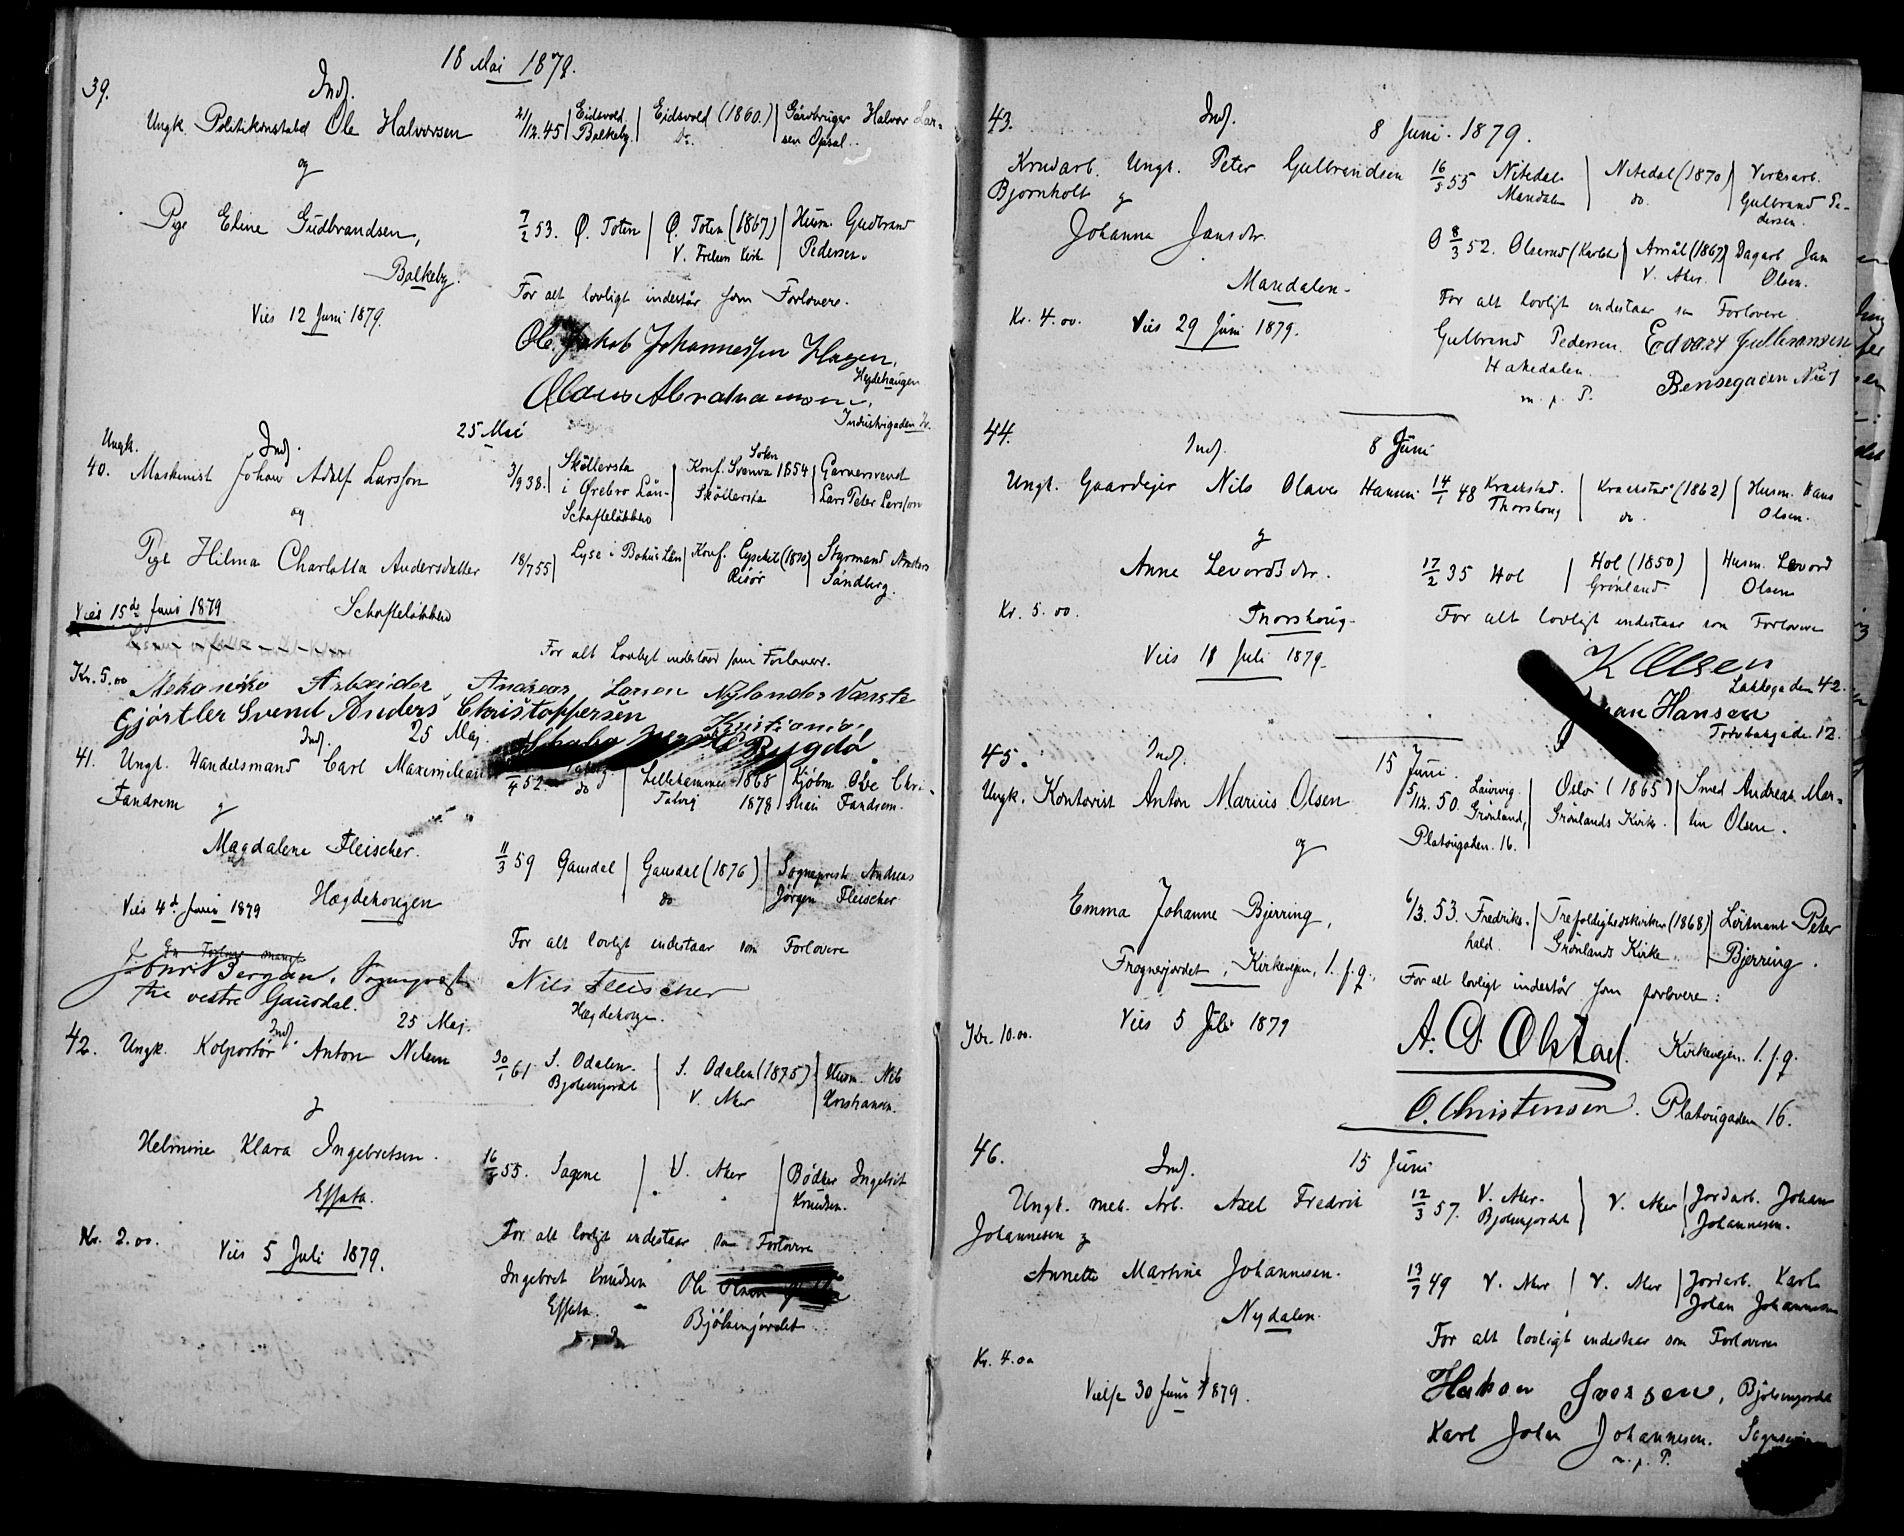 18 Mai 1879.
39.
Indf.
Ungk. Politikonstabel Ole Halvorsen
21/12.45 Eidsvold Bolkeby. Eidsvold (1860.) do. Gårdbruger Halvor Lar-
sen Opsal.
og
Pige Eline Gudbrandsen,
7/2 53. Ø. Toten Ø. Toten (1867) Husm. Gudbrand
Pedersen.
Bolkeby.
For alt lovligt indestår som Forlovere.
Vies 12 Juni 1879.
Ole Jakob Johannessen Hagen,
Hegdehaugen
Olaus Abrahamsen,
Industrigaden
25 Mai
Ungk.
Indf.
40. Maskinist Johan Adolf Larsson
3/9 38. Sköllersta
i Örebro Län
Schafteløkken
Konf. Svenva 1854
Sköllersta
Lars Peter Larsson
og
Pige Hilma Charlotta Andersdatter
18/7 55 Lyse i Bohus Län Konf. (1870)
Risør
Styrmand
Sandberg.
Schafteløkken
Vies 15de Juni 1879
For alt Lovligt indestaar som Forlovere.
Kr. 5.00
Mekaniske Arbeider, Andreas Larsen Nylandes Værste
Gjørtler Svend Anders Christoffersen
Kristiania
Bygdø
Indf.
25 Maj.
41. Ungk. Handelsmand Carl Maximilian
Tandrem
4 52. Talvig
do
Lillehammer 1868
Talvig 1878
Kjøbm. Ove Chri-
stian Tandrem.
Magdalene Fleischer.
11/3 59 Gausdal Gausdal (1876)
do
Sogneprest Andreas
Jørgen Fleischer
Vies 4de Juni 1879
Hægdehougen
For alt lovligt indestaar som Forlovere
Bergan, Sogneprest
til vestre Gausdal.
Nils Fleischer
Hægdehougen.
Indf.
25 Maj.
42. Ungk. Kolportør Anton Nilsen
30/1 61 S. Odalen.
Bjølsenjordet
S. Odalen (1875)
V. Aker
Husm. Nils
Helmine Klara Ingebretsen.
16 55. Sagene V. Aker
Bødker Ingebret
Knudsen.
Effata.
Kr. 2.00.
Vies 5 Juli 1879.
For alt lovligt indestaar som Forlovere
Ingebret Knudsen
Effata
Ole Olsen
Bjølsenjordet
43.
Indf.
8 Juni. 1879.
Krudarb. Ungk. Peter Gulbrandsen
Bjørnholt
16 55 Nitedal
Maridalen
Nitedal (1870)
do.
Verksarb.
Gulbrand Pe-
dersen.
Johanna Jansdtr.
8/3 52. (1867)
V. Aker.
Dagarb. Jan
Olsen.
Maridalen.
For alt lovligt indestaar som Forlovere
Kr. 4.00.
Vies 29 Juni 1879.
Gulbrand Pedersen.
Hakedalen
m. p. P.
Edvart Gulbransen
Bensegaden No 1
44.
Indf.
8 Juni
Ungk. Gaardejer Nils Olaves Hansen
14/1 48 Kraakstad.
Thorshoug
Kraakstad (1862)
do.
Husm. Hans
Olsen.
Anne Levordsdtr.
17/2 35 Hol
Hol (1850)
Grønland.
Husm. Levord
Olsen
Kr. 5.00.
Thorshoug.
For alt lovligt indestaar som Forlovere
Vies 18 Juli 1879.
K Olsen
Lakkegaden 42.
Hansen
Torvbakgade. 12.
45.
Indf.
15 Juni.
Ungk. Kontorist Anton Marius Olsen
5/12. 50. Laurvig.
Grønland,
Platougaden. 16.
Oslo (1865)
Grønlands Kirke.
Smed Andreas Mar-
tin Olsen.
og
Emma Johanne Bjerring,
6/3. 53. Fredriks-
hald.
Trefoldighedskirken (1868)
Grønlands Kirke.
Løitnant Peter
Bjerring.
Frognerjordet, Kirkevejen, 1. f. g.
For alt lovligt indestår som forlovere:
Vies 5 Juli 1879
Kr. 10.00.
Kirkevejen. 1. f. g.
O. Christensen. Platougaden 16.
46.
Indf.
15 Juni
Ungk. mek. Arb. Axel Fredrik
Johannesen
12/3 57. V. Aker.
Bjølsenjordet
V. Aker
Jordarb. Johan
Johannesen.
Annette Martine Johannesen.
49 V. Aker V. Aker
Jordarb. Karl
Johan Johannesen
Nydalen.
For alt lovligt indestaar som Forlovere
Kr. 4.00
Vielse 30 Juni 1879.
Haakon Iversen, Bjølsenjordet
Karl Johan Johannesen.
m. p. P.